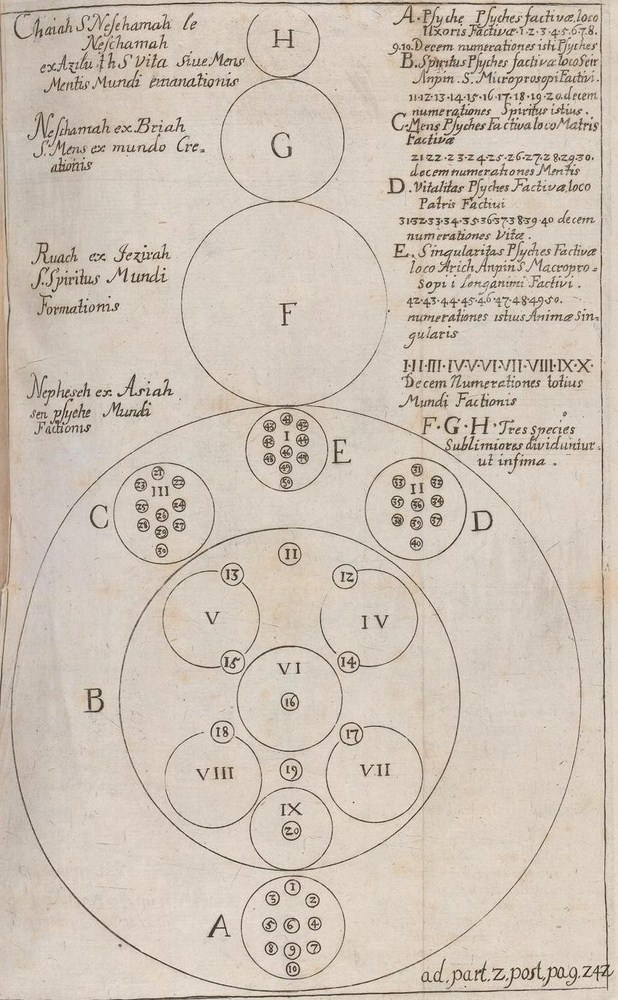 Chaiah S. Neschamah le
Neschamah
ex Azilu th S Vita Siue Mens
Mentis Mundi emanationis
H
A. Psyche Psyches factivæ, loco
Uxoris Factivæ. 1. 2. 3. 4. 5. 6. 7. 8.
9. 10. Decem numerationes isti Psyches
B. Spiritus Psyches factivæ loco Seir
Anpin. S. Microprosopi Factivi.
11. 12. 13. 14. 15. 16. 17. 18. 19. 20. decem
numerationes Spiritus istius.
C. Mens Psyches Factiva loco Matris
Factivæ
21. 22. 23. 24. 25. 26. 27. 28. 29. 30.
decem numerationes Mentis
D. Vitalitas Psyches Factivæ, loco
Patris Factivi
31. 32. 33. 34. 35. 36. 37. 38. 39. 40 decem
numerationes Vitæ.
E. Singularitas Psyches Factivæ
loco Arich Anpin S. Macropro=
sopi i Longanimi Factivi.
42. 43. 44. 45. 46. 47. 48. 49. 50.
numerationes istius Animæ Sin=
gularis
I. II. III. IV. V. VI. VII. VIII. IX. X.
Decem Numerationes totius
Mundi Factionis
F. G. H. Tres species
Sublimiores dividuntur.
ut infima.
Neschamah ex Briah
S. Mens ex mundo Cre=
ationis
G
Ruach ex Jezirah
S. Spiritus Mundi
Formationis
F
Nepheseh ex Asiah
seu psyche Mundi
Factionis
41
43 42
I
45 44
46
48 47
49
50
E
21
23 22
III
25 24
26
28 27
29
30
C
31
33 32
II
35 34
36
38 37
39
40
D
11
13 12
V IV
15 14
VI
16
B
18 17
VIII 19 VII
IX
20
1
3 2
5 6 4
8 9 7
10
A
ad. part. 2. post. pag. 242